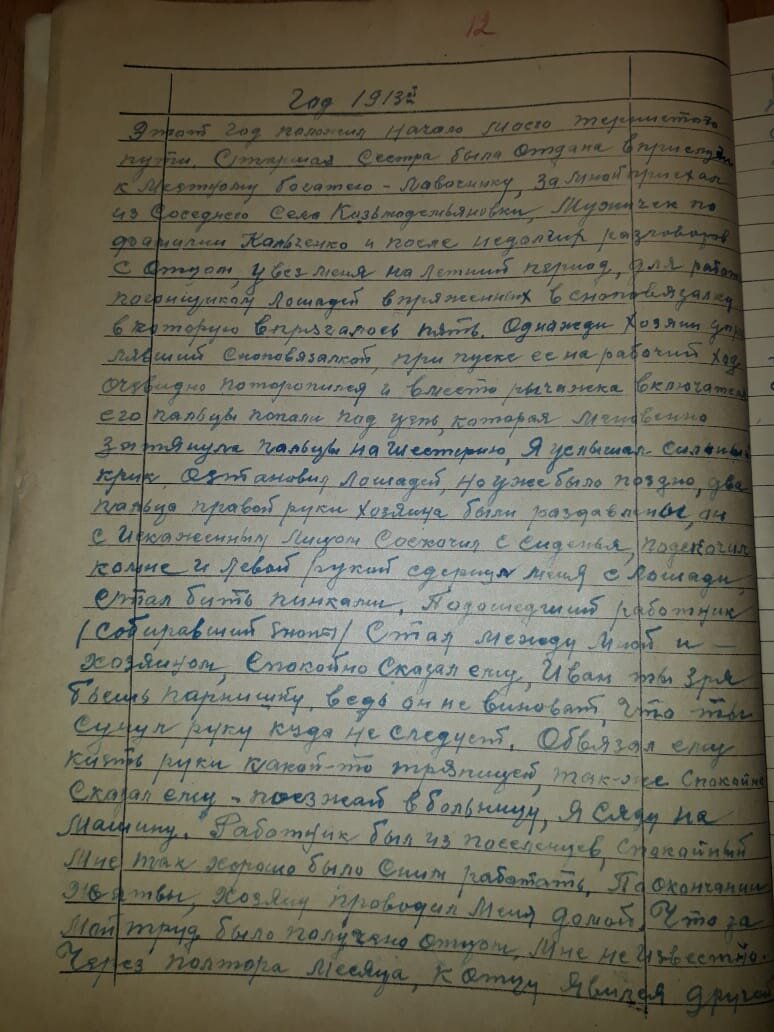 12
Год 1913й
Этот год положил начало моего тернистого
пути. Старшая сестра была отдана в прислуги
к местному богатею - лавочнику, за мной приехал
из соседнего села Казьмодемьяновки, мужичек по
фамилии Кальченко и после недолгих разговоров
с отцом, увез меня на летний период, для работ
погонщиком лошадей впряженных в сноповязалку
в которую впрягалось пять. Однажди хозяин упра
влявший сноповязалкой, при пуске ее на рабочий ход
очевидно поторопился и вместо рычажка включателя
его пальцы попали под цепь, которая мгновенно
затянула пальцы на шестерню, Я услышал сильный
крик, остановил лошадей, но уже было поздно, два
пальца правой руки хозяина были раздавлены, он
с искаженным лицом соскочил с сиденья, подскочил
комне и левой рукой сдернул меня с лошади,
стал бить пинками. Подошедший работник
(собиравший снопы) стал между мной и —
хозяином, спокойно сказал ему, Иван ты зря
бьешь парнишку, ведь он не виноват, что ты
сунул руку куда не следует. Обвязал ему
кисть руки какой-то тряпицей, так-же спокойно
сказал ему - поезжай в больницу, я сяду на
машину. Работник был из поселенцев, спокойный
мне так хорошо было сним работать. По окончании
жатвы, хозяин проводил меня домой. Что за
мой труд было получено отцом, мне не известно.
Через полтора месяца, к отцу явился другой